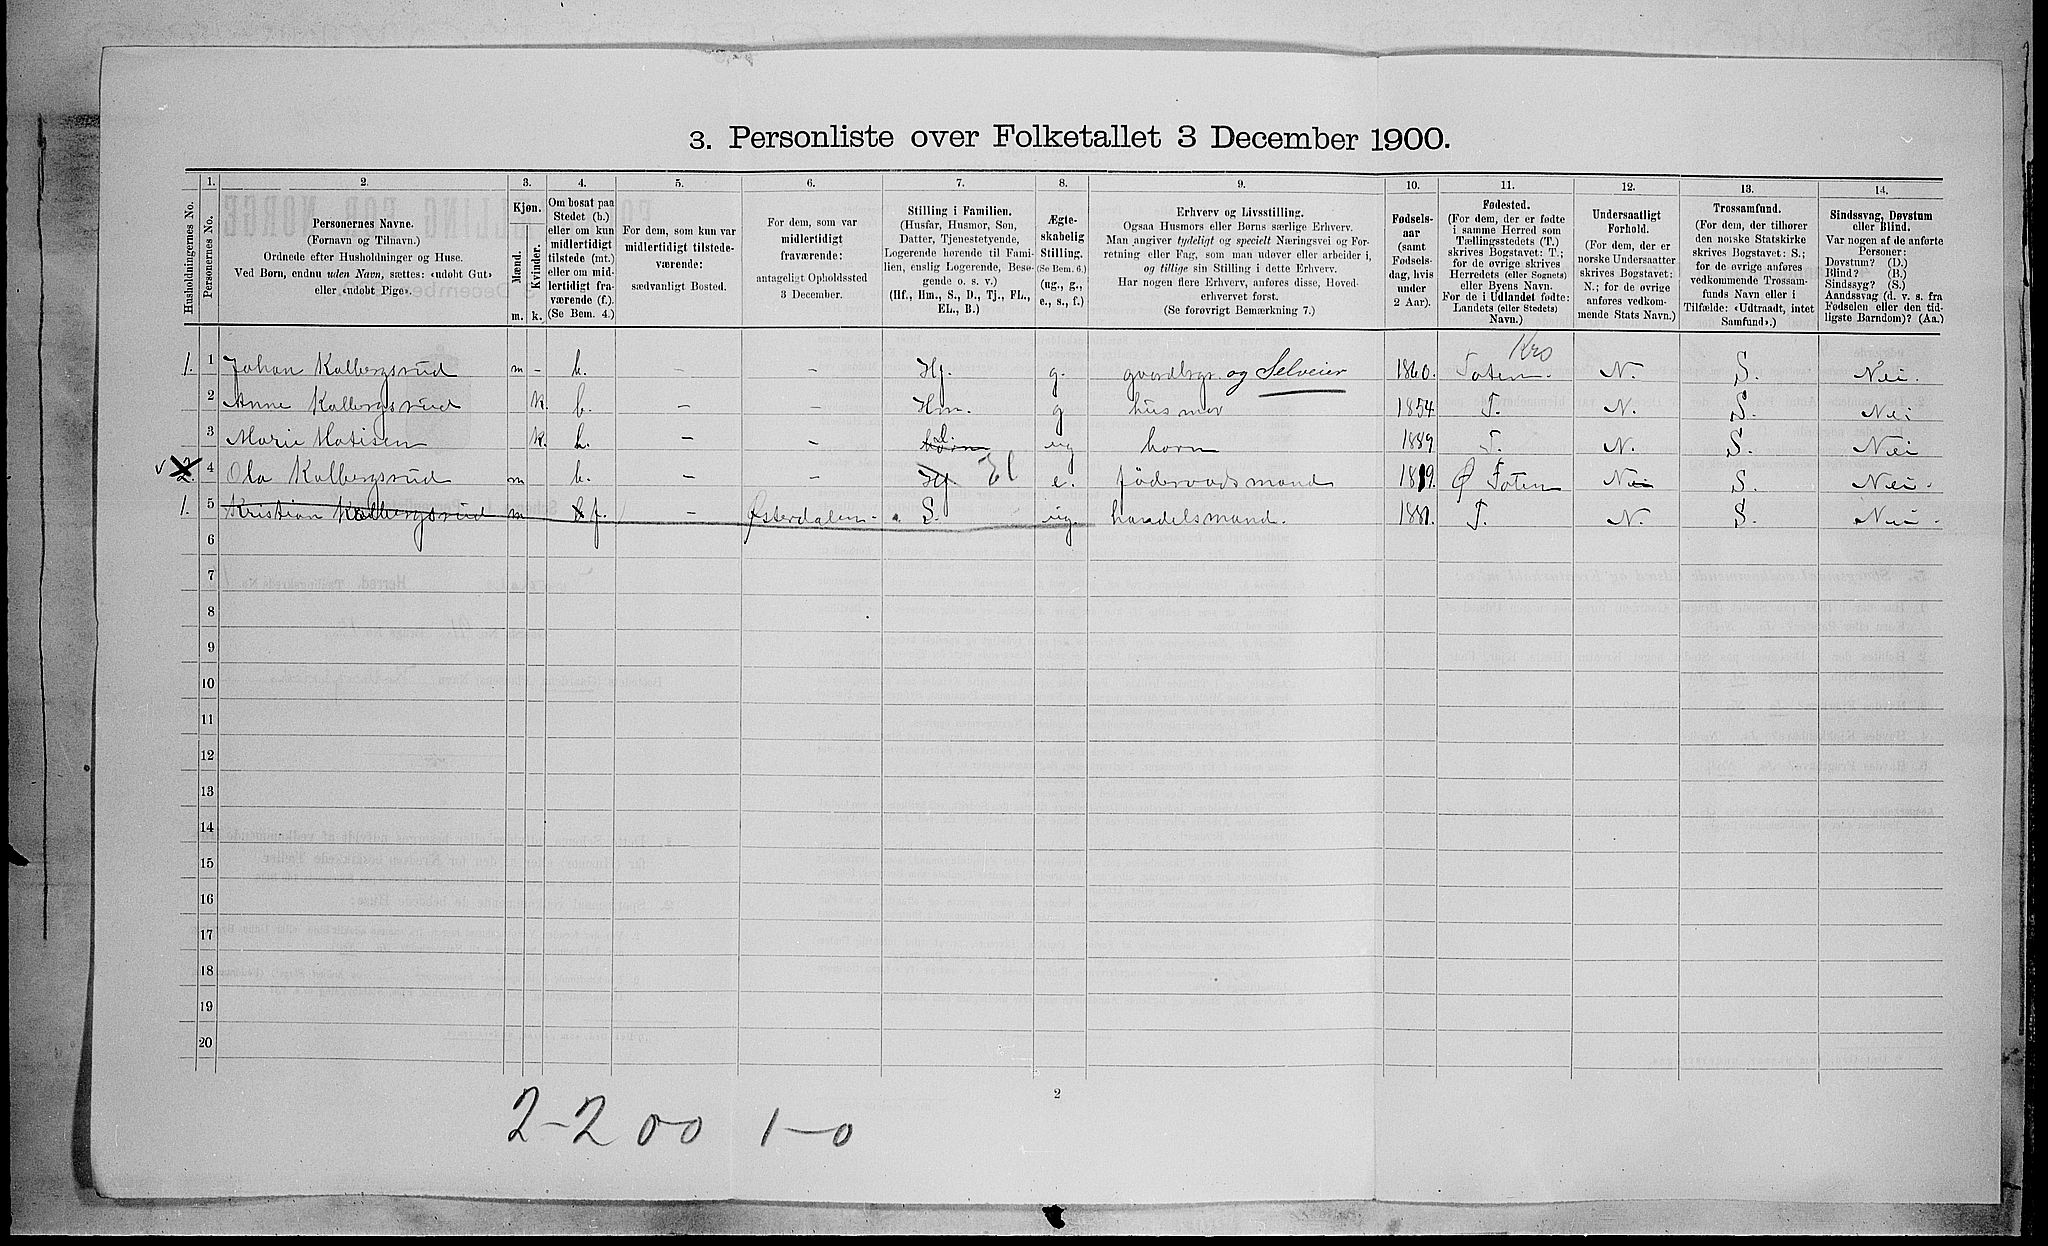 3. Personliste over Folketallet 3 December 1900.
1. 2. 3. 4. 5. 6. 7. 8. 9. 10. 11. 12. 13. 14.
Husholdningernes No.
Personernes No.
Personernes Navne.
(Fornavn og Tilnavn.)
Ordnede efter Husholdninger og Huse.
Ved Børn, endnu uden Navn, sættes: «udøbt Gut»
eller «udøbt Pige».
Kjøn.
Mænd. Kvinder.
m. k.
Om bosat paa
Stedet (b.)
eller om kun
midlertidigt
tilstede (mt.)
eller om mid-
lertidigt fra-
værende (f.).
(Se Bem. 4.)
For dem, som kun var
midlertidigt tilstede-
værende:
sædvanligt Bosted.
For dem, som var
midlertidigt
fraværende:
antageligt Opholdssted
3 December.
Stilling i Familien.
(Husfar, Husmor, Søn,
Datter, Tjenestetyende,
Logerende hørende til Fami-
lien, enslig Logerende, Besø-
gende o. s. v.)
(Hf., Hm., S., D., Tj., FL.,
EL., B.)
Ægte-
skabelig
Stilling.
(Se Bem. 6.)
(ug., g.,
e., s., f.)
Erhverv og Livsstilling.
Ogsaa Husmors eller Børns særlige Erhverv.
Man angiver tydeligt og specielt Næringsvei og For-
retning eller Fag, som man udøver eller arbeider i,
og tillige sin Stilling i dette Erhverv.
Har nogen flere Erhverv, anføres disse, Hoved-
erhvervet først.
(Se forøvrigt Bemærkning 7.)
Fødsels-
aar
(samt
Fødsels-
dag, hvis
under
2 Aar).
Fødested.
(For dem, der er fødte
i samme Herred som
Tællingsstedets (T.)
skrives Bogstavet: T.;
for de øvrige skrives
Herredets (eller Sognets)
eller Byens Navn.
For de i Udlandet fødte:
Landets (eller Stedets)
Navn.)
Undersaatligt
Forhold.
(For dem, der er
norske Undersaatter
skrives Bogstavet:
N.; for de øvrige
anføres vedkom-
mende Stats Navn.)
Trossamfund.
(For dem, der tilhører
den norske Statskirke
skrives Bogstavet: S.;
for de øvrige anføres
vedkommende Trossam-
funds Navn eller i
Tilfælde: «Udtraadt, intet
Samfund».)
Sindssvag, Døvstum
eller Blind.
Var nogen af de anførte
Personer:
Døvstum? (D.)
Blind? (B.)
Sindssyg? (S.)
Aandssvag (d. v. s. fra
Fødselen eller den tid-
ligste Barndom)? (Aa.)
Krs
1. 1 Johan Kalbergsrud m - b. - - Hf. g. gaardbrgr og Selveier 1860. Toten. N. S. Nei.
2 Anne Kalbergsrud k. b. - - Hm. g husmor 1854 T. N. S. Nei
3 Marie Matisen k. b. - - børn D. ug born 1889 T. N. S. Nei
v 2. 4 Ola Kalbergsrud m b. - - Hf El e. föderaadsmand 1819. Ø Toten Nei S. Nei.
1. 5 Kristian Kalbergsrud m b f. - Østerdalen. S. ug. handelsmand. 1881. T. N. S. Nei.
6
7
8
9
10
11
12
13
14
15
16
17
18
19
20
2
2-2 0-0 1-0